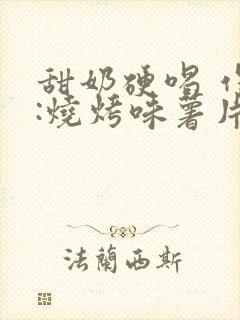 甜奶硬唱
:燒烤味薯片
法蘭西斯